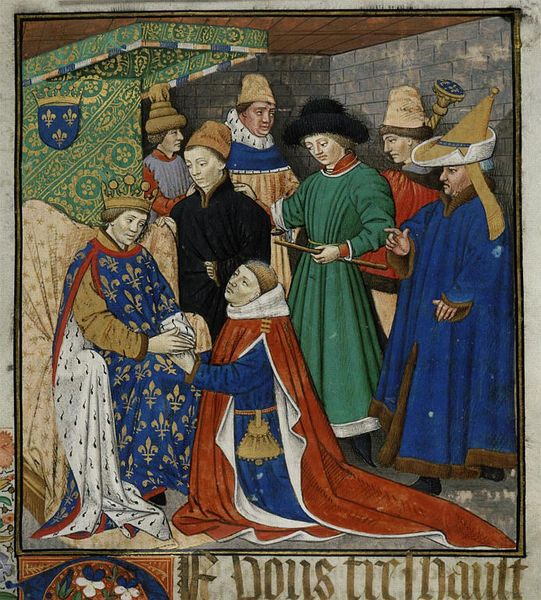 vous treshault